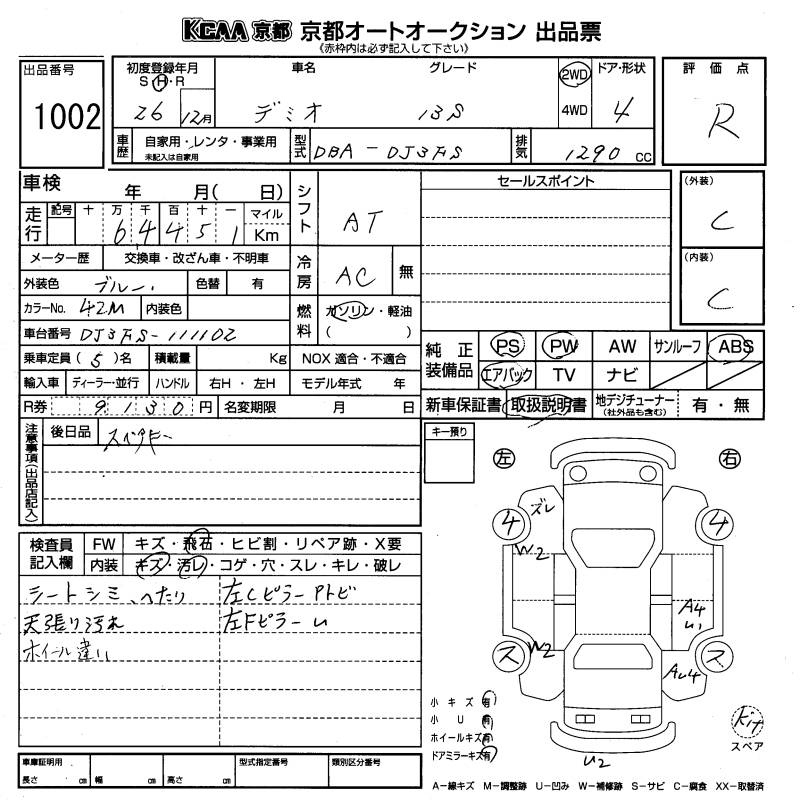 KCAA 京都 京都オートオークション 出品票
《赤枠内は必ず記入して下さい》
出品番号
1002
初度登録年月
S・H・R
26 12月
車名
デミオ
グレード
13S
2WD
4WD
ドア・形状
4
評価点
R
車歴
自家用・レンタ・事業用
未記入は自家用
型式
DBA-DJ3FS
排気
1290 cc
車検 年 月( 日)
走行
記号 十 万 千 百 十 一 マイル
6 4 4 5 1 Km
メーター歴 交換車・改ざん車・不明車
外装色 ブルー 色替 有
カラーNo. 42M 内装色
車台番号 DJ3FS-111102
乗車定員(5)名 積載量 Kg
輸入車 ディーラー・並行 ハンドル 右H・左H
R券 9130円 名変期限 月 日
シフト AT
冷房 AC 無
燃料 ガソリン・軽油
( )
NOX 適合・不適合
モデル年式 年
セールスポイント
(外装)
C
(内装)
C
純正装備品
PS PW AW サンルーフ ABS
エアバック TV ナビ
新車保証書 取扱説明書 地デジチューナー(社外品も含む) 有・無
注意事項(出品店記入)
後日品 スペアキー
キー預り
左 右
検査員記入欄
FW キズ・飛石・ヒビ割・リペア跡・X要
内装 キズ・汚レ・コゲ・穴・スレ・キレ・破レ
シートシミ、へたり
天張り汚れ
ホイール違い
左Cピラーアトビ
左Fピラーu
ズレ
4
4
W2
A4
u1
ス
W2
ス
AU4
U2
小キズ有
小U有
ホイールキズ有
ドアミラーキズ有
Kit
スペア
車庫証明用
長さ cm 幅 cm 高さ cm
型式指定番号
類別区分番号
A−線キズ M−調整跡 U−凹み W−補修跡 S−サビ C−腐食 XX−取替済